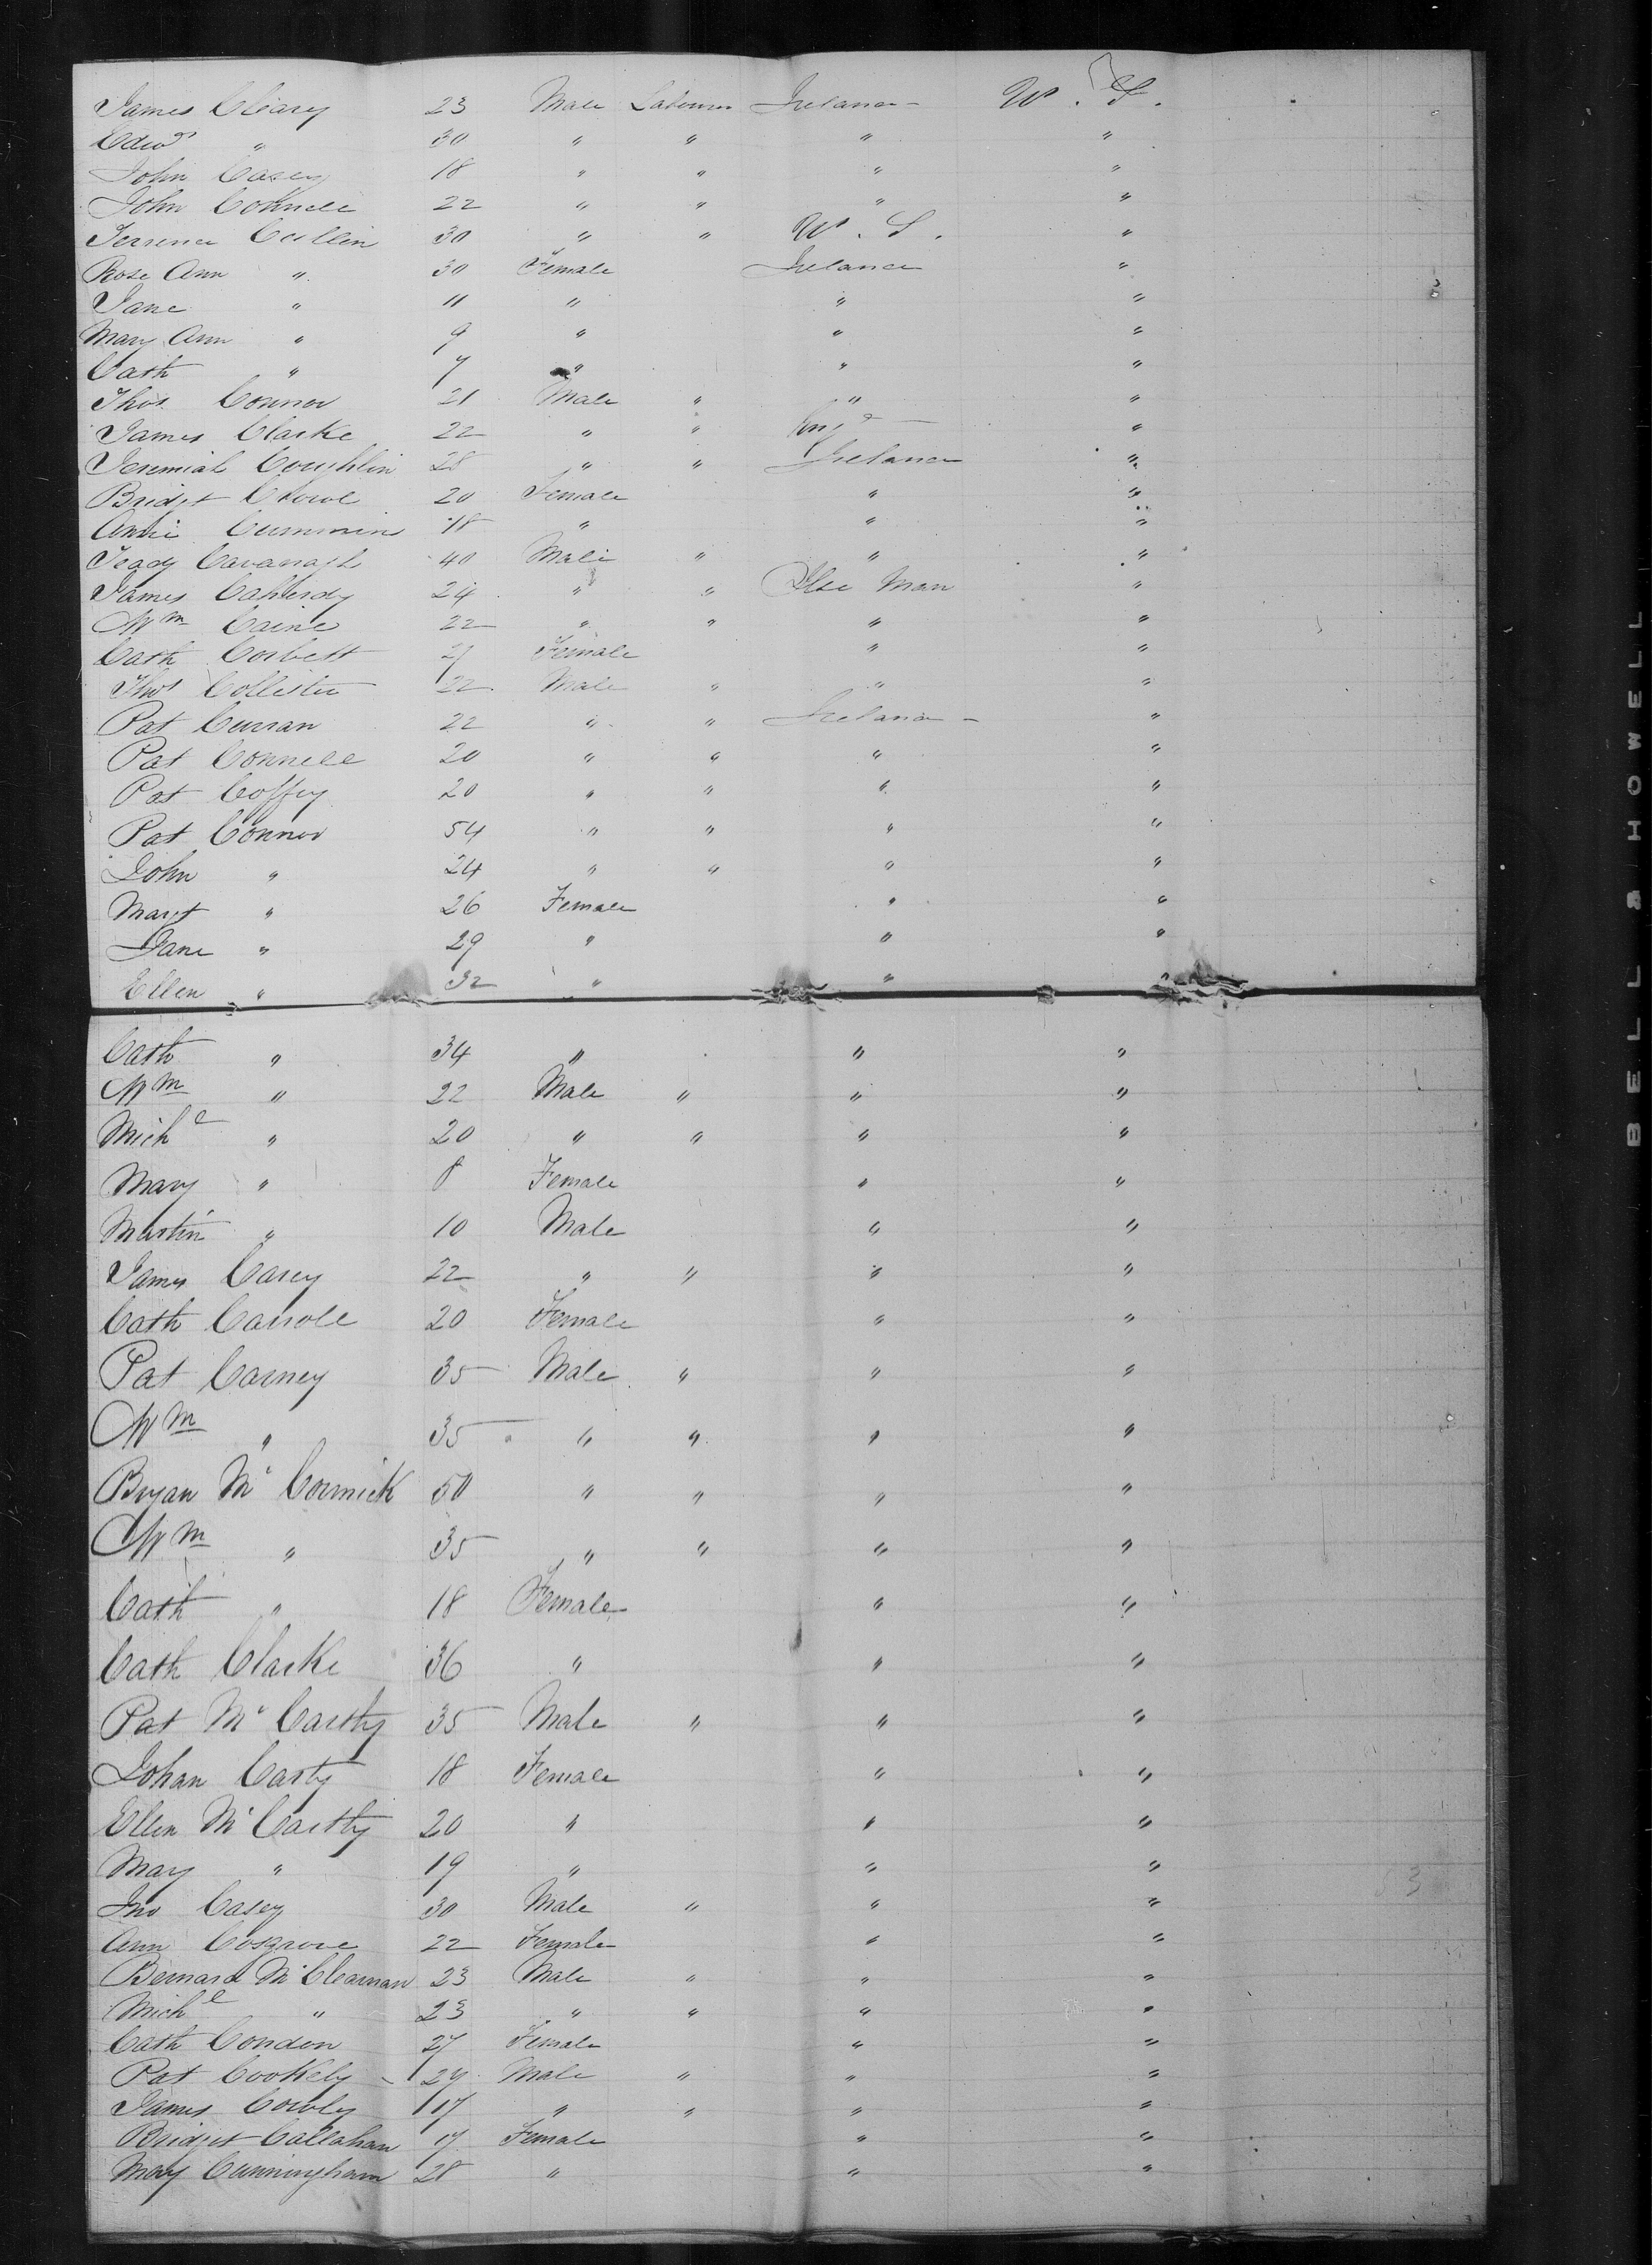 James Cleary 23 Male Labourer Ireland U. S.
Edwd " 30 " " " "
John Casey 18 " " " "
John Connell 22 " " " "
Terrence Cullin 30 " " U. S. "
Rose Ann " 30 Female Ireland "
Jane " 11 " " "
Mary Ann " 9 " " "
Cath " 7 " " "
Thos Connor 21 Male " " "
James Clarke 22 " " Engd "
Jeremiah Coughlin 28 " " Ireland "
Bridget Crowe 20 Female " "
Annie Cummins 18 " " "
Teady Cavanagh 40 Male " " "
James 24 " " Isle Man "
Wm Caine 22 " " " "
Cath Corbett 21 Female " "
Thos Collister 22 Male " " "
Pat Curran 22 " " Ireland "
Pat Connell 20 " " " "
Pat Coffey 20 " " " "
Pat Connor 54 " " " "
John " 24 " " " "
Margt " 26 Female " "
Jane " 29 " " "
Ellen " 32 " " "
Cath " 34 " " "
Wm " 22 Male " " "
Michl " 20 " " " "
Mary " 8 Female " "
Martin " 10 Male " "
James Carey 22 " " " "
Cath Carroll 20 Female " "
Pat Carney 35 Male " " "
Wm " 35 " " " "
Bryan McCormick 50 " " " "
Wm " 35 " " " "
Cath " 18 Female " "
Cath Clarke 36 " " "
Pat McCarthy 35 Male " " "
Johan Carty 18 Female " "
Ellen McCarthy 20 " " "
Mary " 19 " " "
Jno Casey 30 Male " " "
Ann Cosgrove 22 Female " "
Bernard McClearnan 23 Male " " "
Michl " 23 " " " "
Cath Condon 27 Female " "
Pat Cookely 27 Male " " "
James Cowley 17 " " " "
Bridget Callahan 17 Female " "
Mary Cunningham 28 " " "
BELL & HOWELL